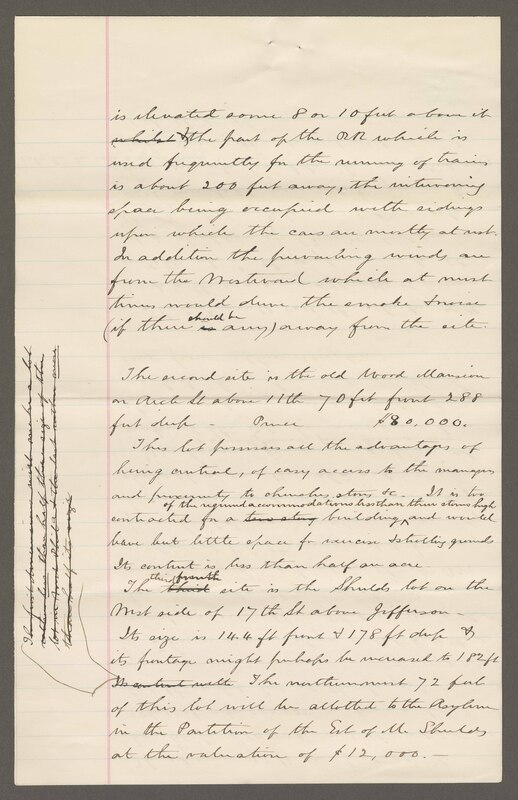 is elevated some 8 or 10 feet above it
whilst & the part of the RR which is
used frequently for the running of trains
is about 200 feet away, the intervening
space being occupied with sidings
upon which the cars are mostly at rest.
In addition the prevailing winds are
from the Westward which at most
times would drive the smoke & noise
should be
(if there is any) away from the site.
The second site is the old Wood Mansion
on Arch St above 11th 70 feet front 288
feet deep Price $80,000.
This lot possesses all the advantages of
being central, of easy access to the managers
and proximity to churches, stores &c. It is too
of the required accommodations less than three stories high
contracted for a two story building, and would
leave but little space for exercise & shelter grounds
Its content is less than half an acre
third fourth
The third site is the Shields lot on the
West side of 17th St above Jefferson
Its size is 144 ft front & 178 ft deep &
its frontage might perhaps be increased to 182 ft
Its content with The northernmost 72 feet
of this lot will be allotted to the Asylum
in the Partition of the Est of Mr Shields
at the valuation of $12,000.—